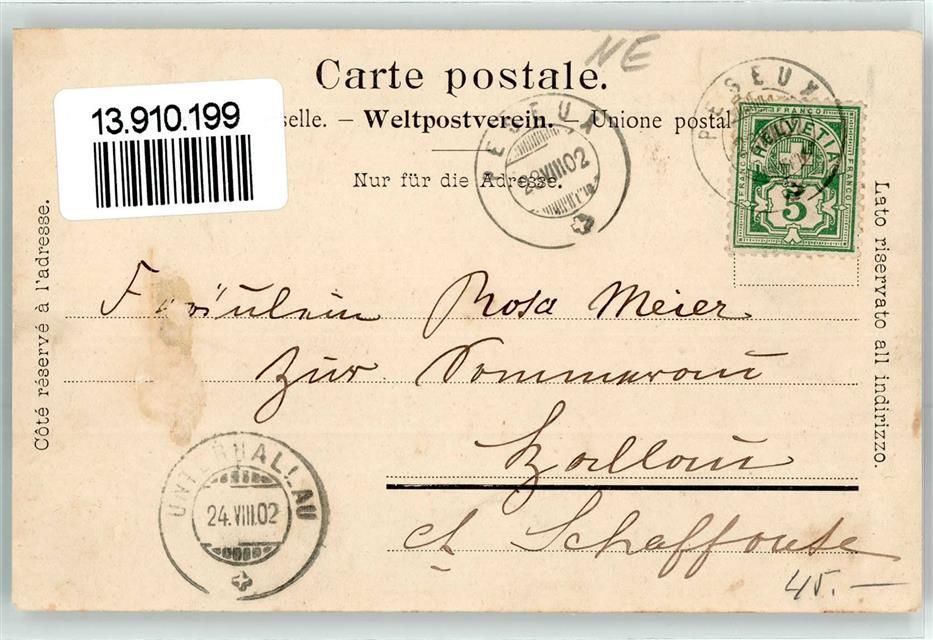 NE
Carte postale.
13.910.199
selle. – Weltpostverein. – Unione postal
Nur für die Adresse.
PESEUX
23.VIII.02
PESEUX
FRANCO
HELVETIA
FRANCO
FRANCO
5
Côté réservé à l'adresse.
Lato riservato all indirizzo.
Fräulein Rosa Meier
Zur Sommerau
Hallau
ct. Schaffouse
UNTERHALLAU
24.VIII.02
45.–